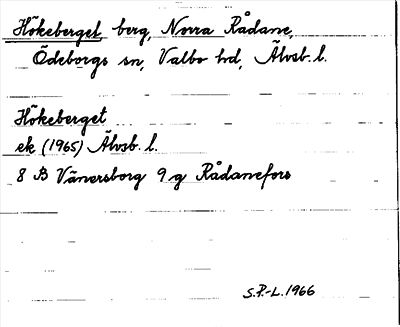 Hökeberget, berg, Norra Rådane,
Ödeborgs sn, Valbo hd, Älvsb. l.
Hökeberget
ek (1965) Älvsb. l.
8 B Vänersborg 9 g Rådanefors
S.P.-L. 1966